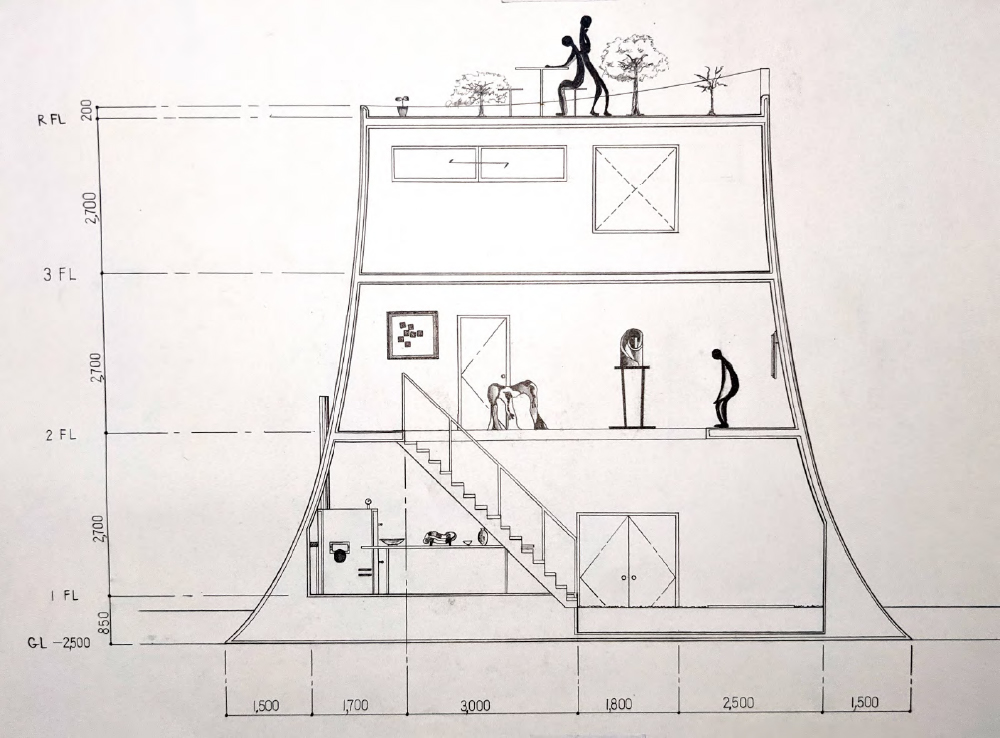 200
R FL
2,700
3 FL
2,700
2 FL
2,700
1 FL
850
GL -2,500
1,500 1,700 3,000 1,800 2,500 1,500